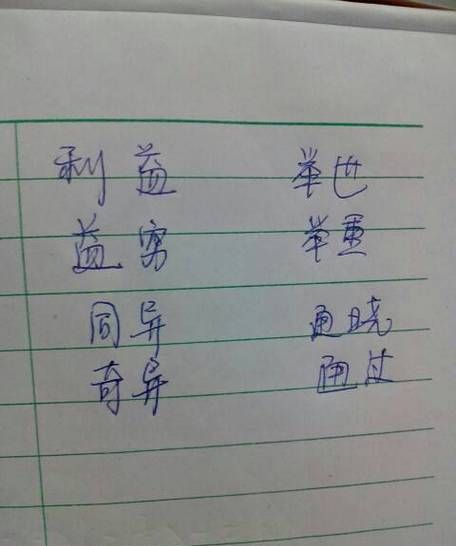 利益 举世
益 举重
同异 通晓
奇异 通过